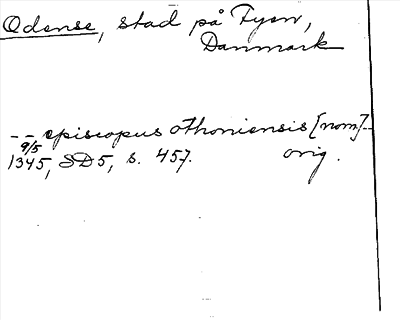 Odense, stad på Fyen,
Danmark
-- episcopus othoniensis [nom] --
9/5
1345, SD5, s. 457. orig.